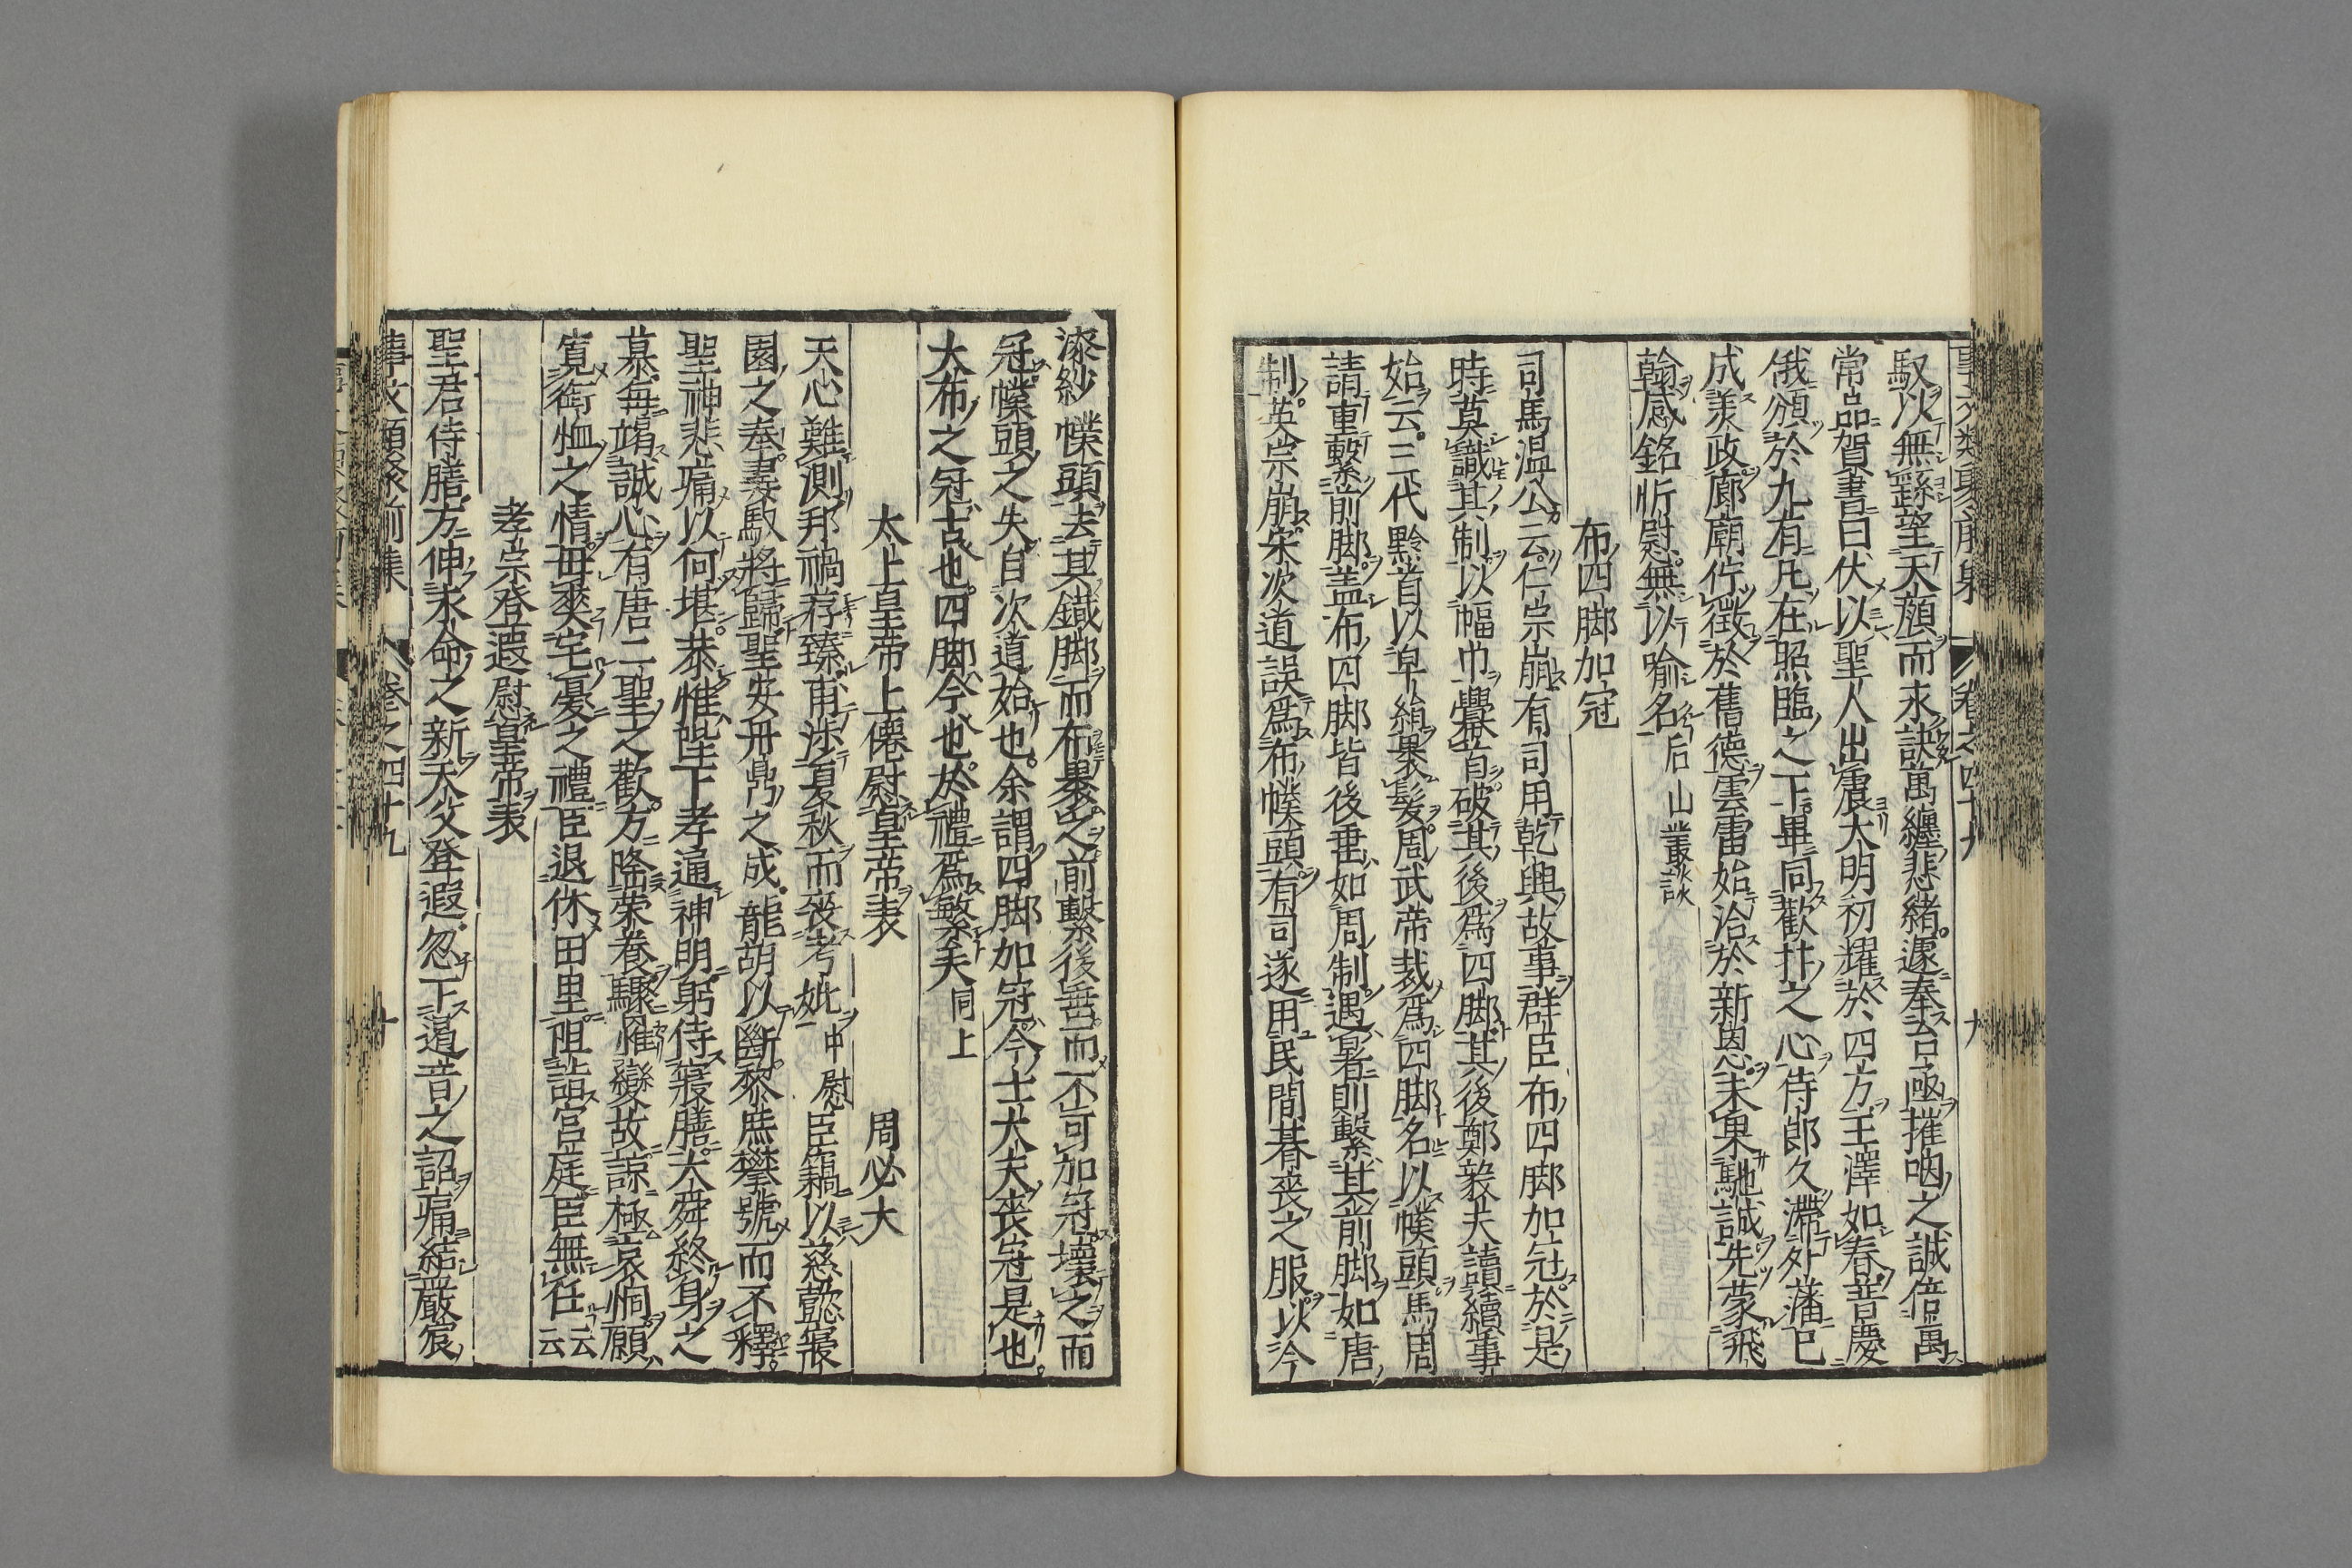 馭以無繇望天顔而求訣萬纏悲緒遽奉台函摧咽之誠倍萬
常品賀書曰伏以聖人出震大明初耀於四方王澤如春普慶
俄頒於九有凡在照臨之下畢同歡抃之心侍郎久滯外藩已
成美政廊廟佇徵於舊德雲雷始洽於新恩未果馳誠先蒙飛
翰感銘忻慰無以喻名后山叢談
布四脚加冠
司馬温公云仁宗崩有司用乾興故事群臣布四脚加冠於是
時莫識其制以幅巾疊首破其後爲四脚其後鄭毅夫讀續事
始云三代黔首以皁絹裹髮周武帝裁爲四脚名以幞頭馬周
請重繫前脚蓋布四脚皆後垂如周制遇暑則繫其前脚如唐
制英宗崩宋次道誤爲布幞頭有司遂用民間朞喪之服以今
漆紗幞頭去其鐵脚而布裹之前繫後垂而不可加冠壞之而
冠幞頭之失自次道始也余謂四脚加冠今士大夫喪冠是也
大布之冠古也四脚今也於禮爲繁夫同上
太上皇帝上僊慰皇帝表 周必大
天心難測邦禍荐臻甫涉夏秋而喪考妣中慰臣竊以慈懿寢
園之奉褰馭將歸聖安丹鼎之成龍胡以斷黎庶攀號而不釋
聖神悲痛以何堪恭惟陛下孝通神明躬侍寢膳大舜終身之
慕每竭誠心有唐二聖之歡方隆榮養驟罹變故諒極哀恫願
寛銜恤之情毋爽宅憂之禮臣退休田里阻詣宮庭臣無任云云
孝宗登遐慰皇帝表
聖君侍膳方伸永命之新天父登遐忽下遺音之詔痛結嚴宸
事文類聚前集 卷之四十九 十